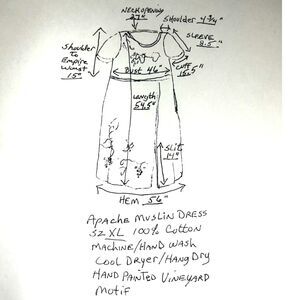 NECK OPENING
27"
Shoulder 4 3/4"
SLEEVE
8.5"
Shoulder
To
Empire
Waist
15"
CUFF
15.5"
Bust 46"
Length
54.5"
Slit
14"
HEM 56"
APACHE MUSLIN DRESS
SZ XL 100% Cotton
MACHINE/HAND WASH
COOL DRYER/HANG DRY
HAND PAINTED VINEYARD
MOTIF